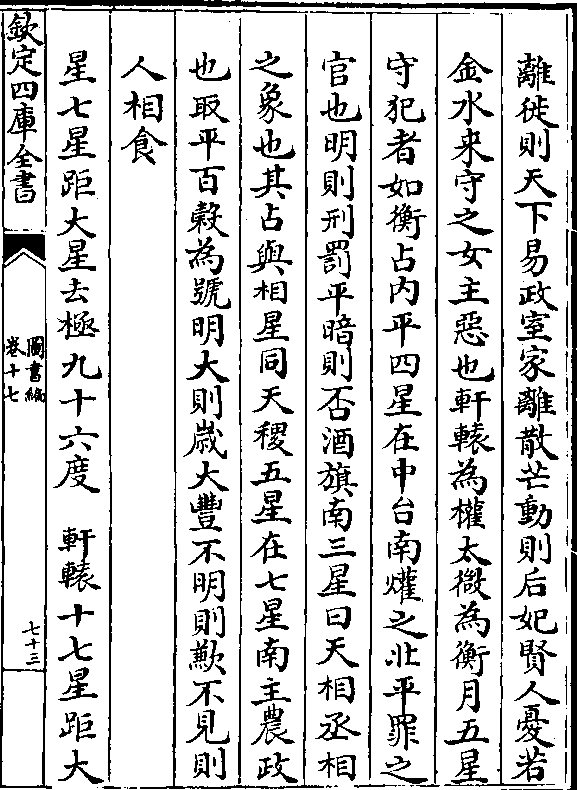 離徙則天下易政室家離散芒動則后妃賢人憂若
金水来守之女主惡也軒轅為權太微為衡月五星
守犯者如衡占内平四星在中台南爟之北平罪之
官也明則刑罰平暗則否酒旗南三星曰天相丞相
之象也其占與相星同天稷五星在七星南主農政
也取平百榖為號明大則歳大豐不明則歉不見則
人相食
星七星距大星去極九十六度　軒轅十七星距大
欽定四庫全書
圖書編
卷十七
七十三